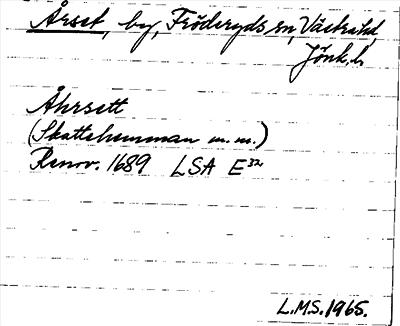 Årset, by, Fröderyds sn, Västra hd,
Jönk. l.
Åhrsett
(Skattehemman m.m.)
Renov. 1689 LSA E³²
L.M.S. 1965.